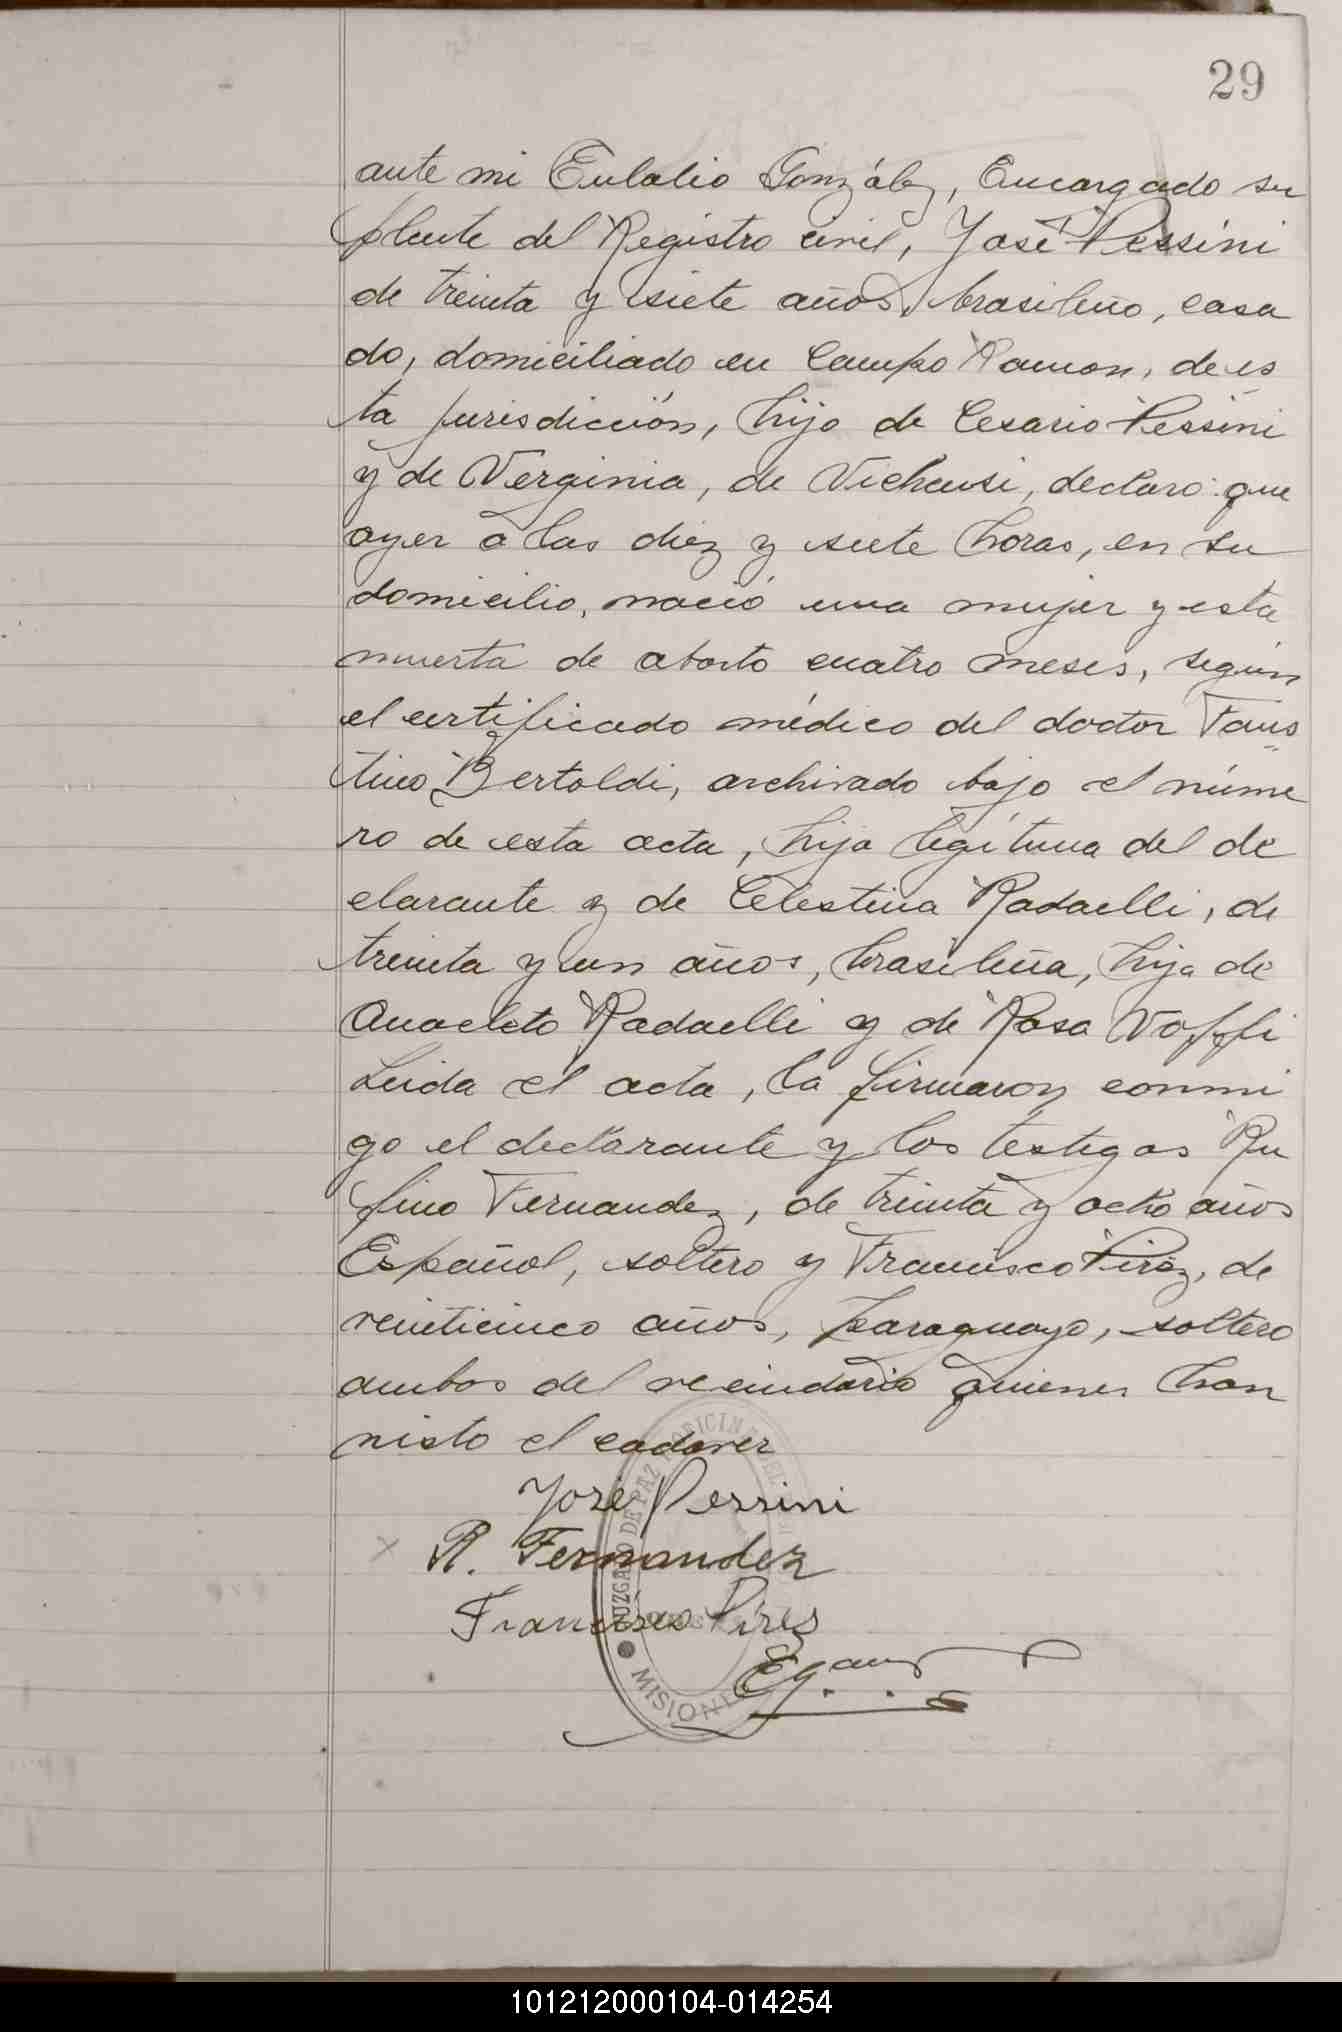 29
ante mi Eulalio González, Encargado su
plente del Registro civil, José Pessini
de treinta y siete años, brasileño, casa
do, domiciliado en Campo Ramon, de es
ta jurisdicción, hijo de Cesario Pessini
y de Verginia, de Vichensi, declaro: que
ayer a las diez y siete horas, en su
domicilio, nació una mujer y esta
muerta de aborto cuatro meses, según
el certificado médico del doctor Faus
tino Bertoldi, archivado bajo el núme
ro de esta acta, hija legítima del de
clarante y de Celestina Radaelli, de
treinta y un años, brasileña, hija de
Anacleto Radaelli y de Rosa Voffi
Leida el acta, la firmaron conmi
go el declarante y los testigos Ru
fino Fernandez, de treinta y ocho años
Español, soltero y Francisco Pirez, de
veinticinco años, paraguayo, soltero
ambos del vecindario quienes han
visto el cadaver
José Pessini
R. Fernandez
Francisco Pires
JUZGADO DE PAZ OFICINA DEL
MISIONES
101212000104-014254